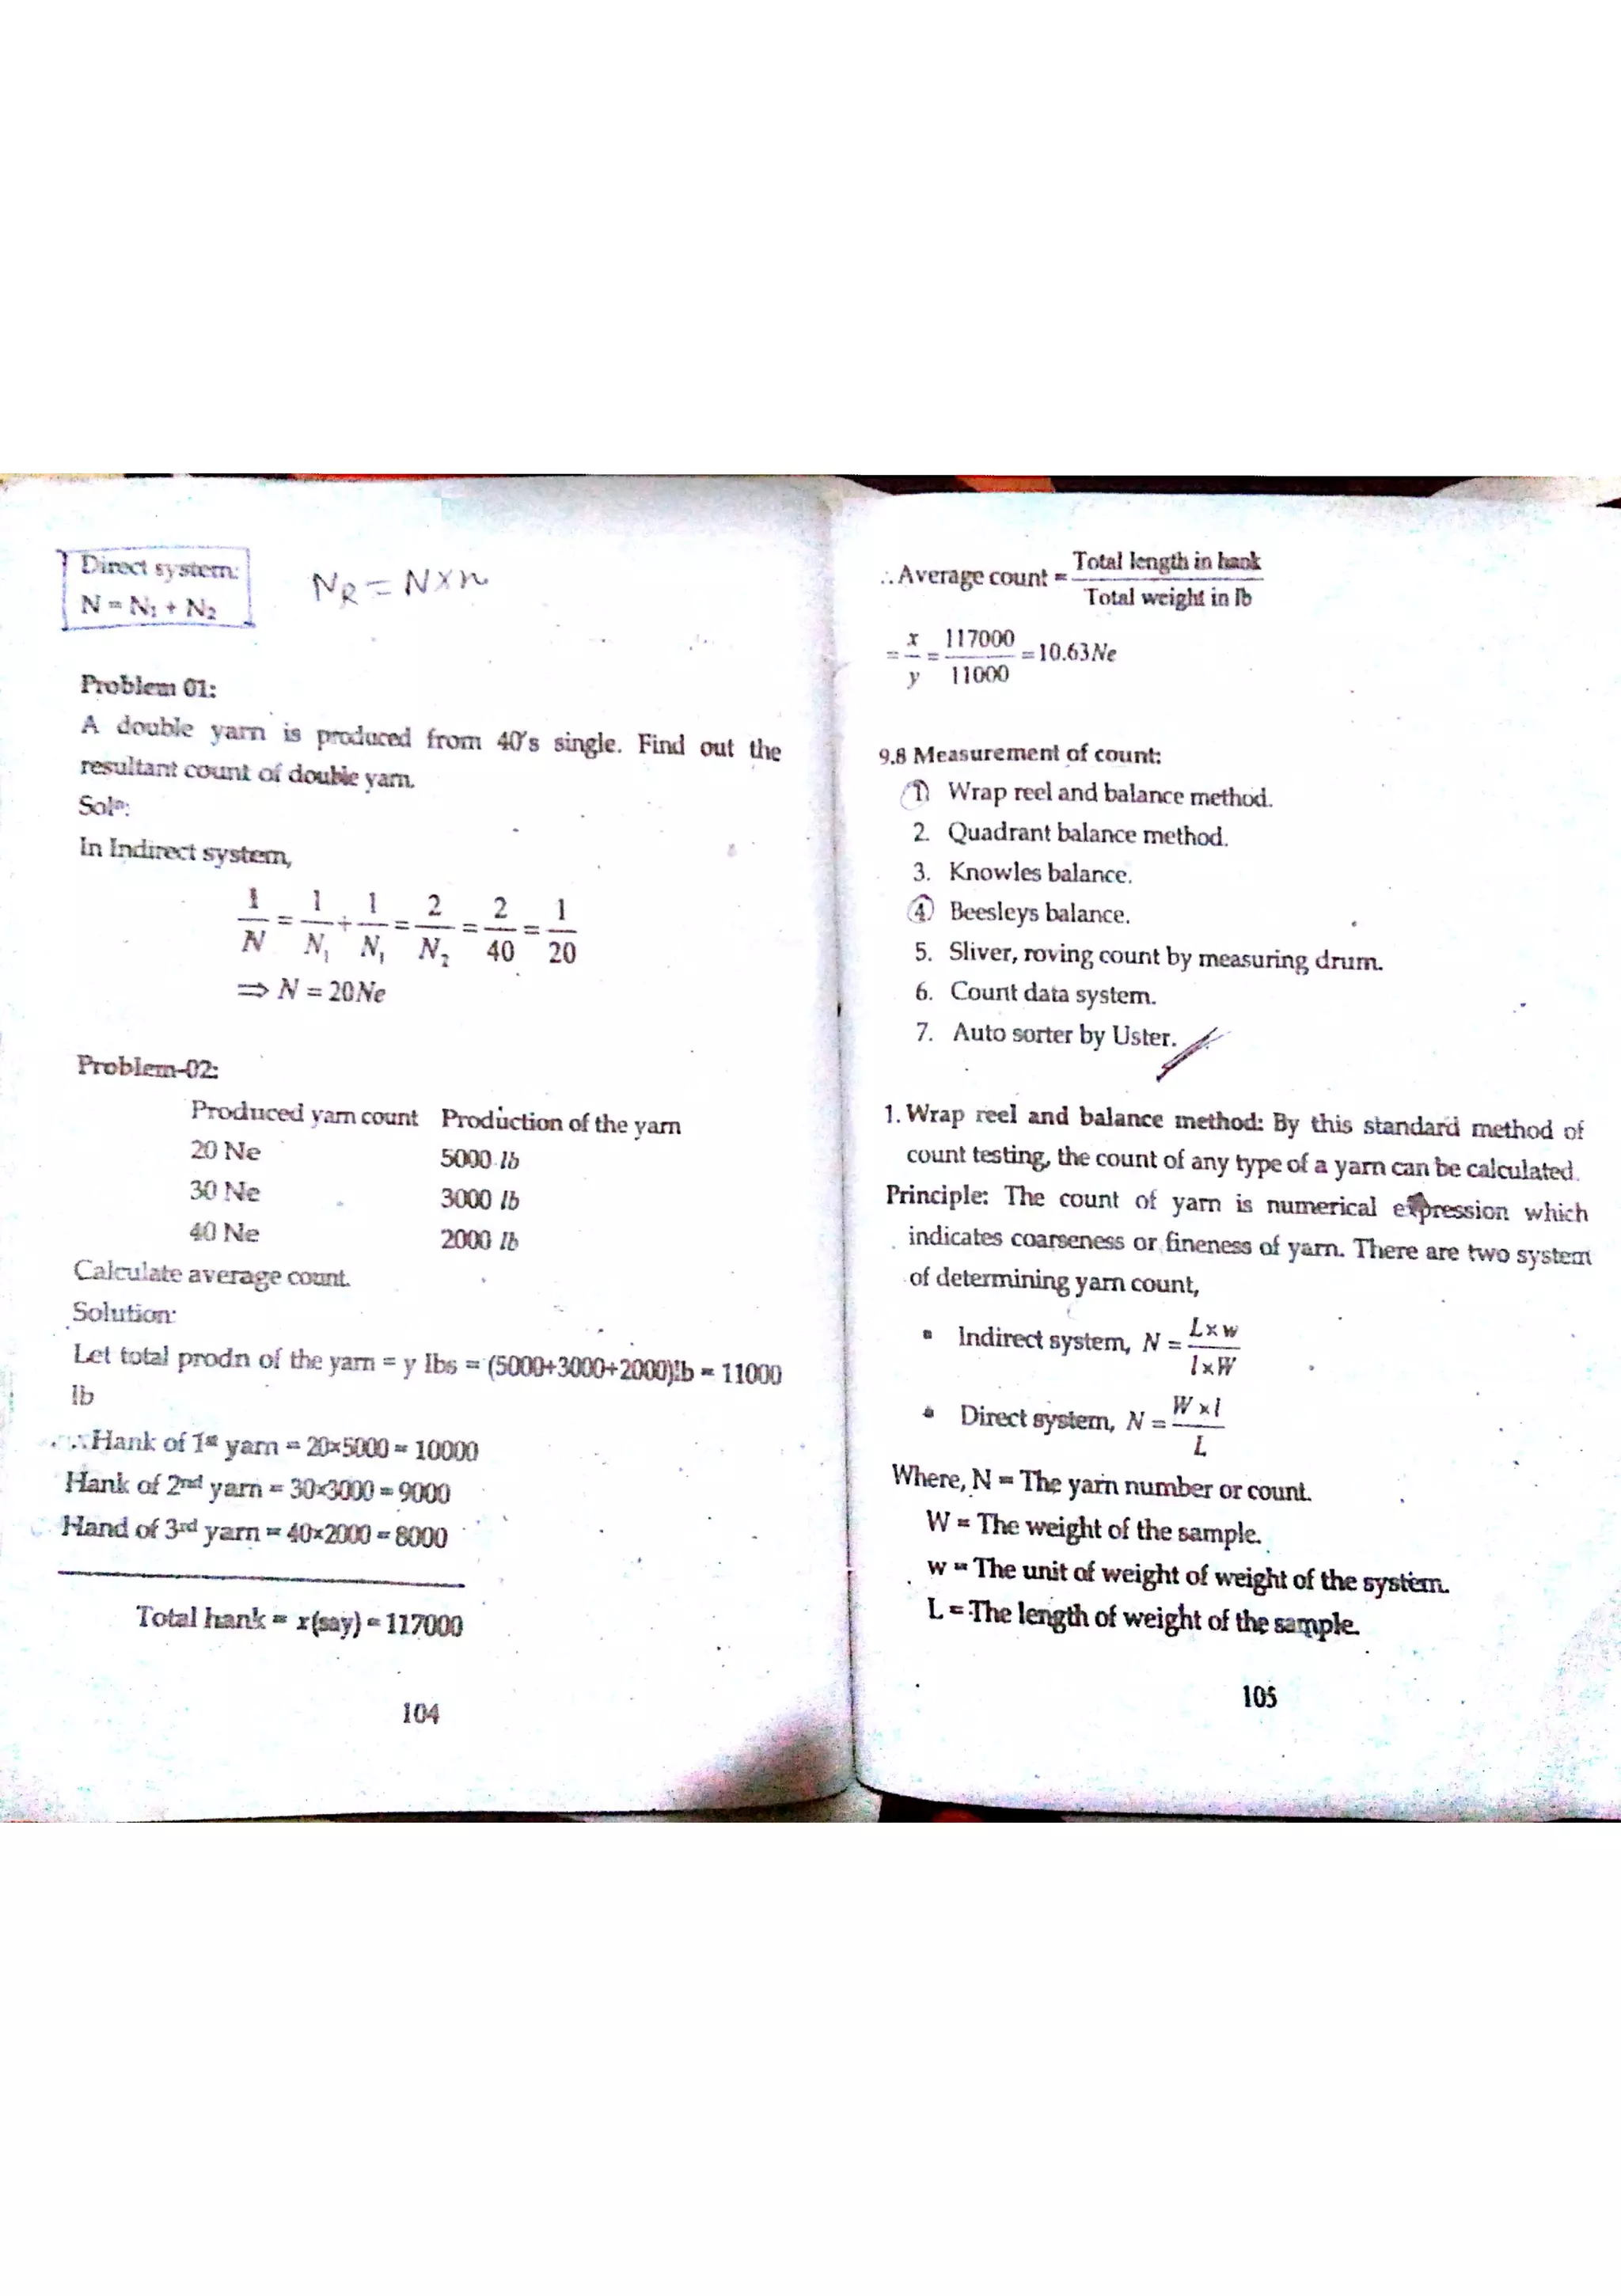 Direct system:
N = N₁ + N₂
N_R = N×n
Problem 01:
A double yarn is produced from 40's single. Find out the
resultant count of double yarn.
Solⁿ:
In Indirect system,
1/N = 1/N₁ + 1/N₁ = 2/N₂ = 2/40 = 1/20
⇒ N = 20Ne
Problem-02:
Produced yarn count Production of the yarn
20 Ne 5000 lb
30 Ne 3000 lb
40 Ne 2000 lb
Calculate average count.
Solution:
Let total prodn of the yarn = y lbs = (5000+3000+2000)lb = 11000
lb
∴Hank of 1st yarn = 20×5000 = 10000
Hank of 2nd yarn = 30×3000 = 9000
Hand of 3rd yarn = 40×2000 = 8000
Total hank = x(say) = 117000
104
∴Average count = Total length in hank / Total weight in lb
= x/y = 117000/11000 = 10.63Ne
9.8 Measurement of count:
1. Wrap reel and balance method.
2. Quadrant balance method.
3. Knowles balance.
4. Beesleys balance.
5. Sliver, roving count by measuring drum.
6. Count data system.
7. Auto sorter by Uster.
1. Wrap reel and balance method: By this standard method of
count testing, the count of any type of a yarn can be calculated.
Principle: The count of yarn is numerical expression which
indicates coarseness or fineness of yarn. There are two system
of determining yarn count,
▪ Indirect system, N = L×w / l×W
▪ Direct system, N = W×l / L
Where, N = The yarn number or count.
W = The weight of the sample.
w = The unit of weight of weight of the system.
L = The length of weight of the sample.
105